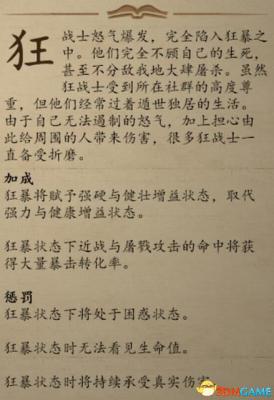 狂战士怒气爆发，完全陷入狂暴之
中。他们完全不顾自己的生死，
甚至不分敌我地大肆屠杀。虽然
狂战士受到所在社群的高度尊
重，但他们经常过着遁世独居的生活。
由于自己无法遏制的怒气，加上担心由
此给周围的人带来伤害，很多狂战士一
直备受折磨。
加成
狂暴将赋予强硬与健壮增益状态，取代
强力与健康增益状态。
狂暴状态下近战与屠戮攻击的命中将获
得大量暴击转化率。
惩罚
狂暴状态下将处于困惑状态。
狂暴状态时无法看见生命值。
狂暴状态时将持续承受真实伤害
GAME